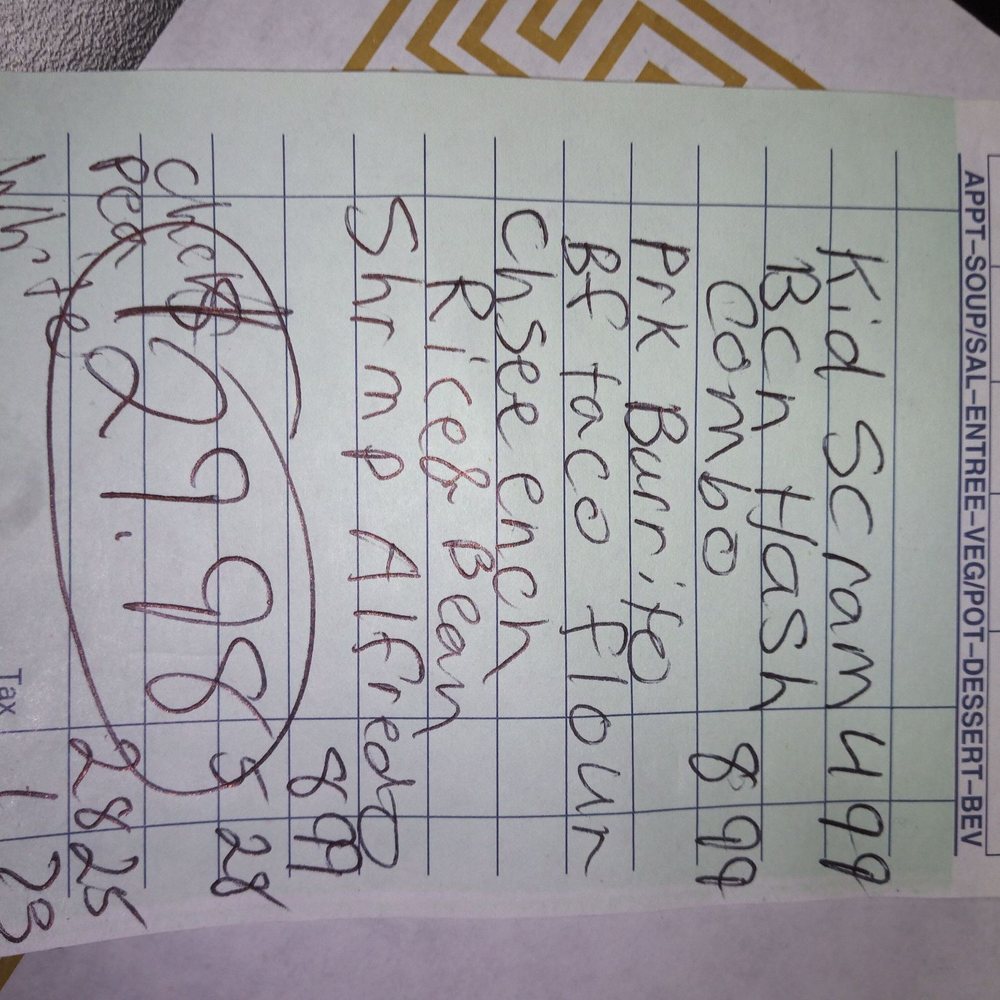 APPT–SOUP/SAL–ENTREE–VEG/POT–DESSERT–BEV
Kid Scram 4 99
Bcn Hash
Combo 8 99
Prk Burrito
Bf taco flour
Chsee ench
Rice & Bean
Shrmp Alfredo
8 99
5 28
29.98
28 25
White
Tax 1 73